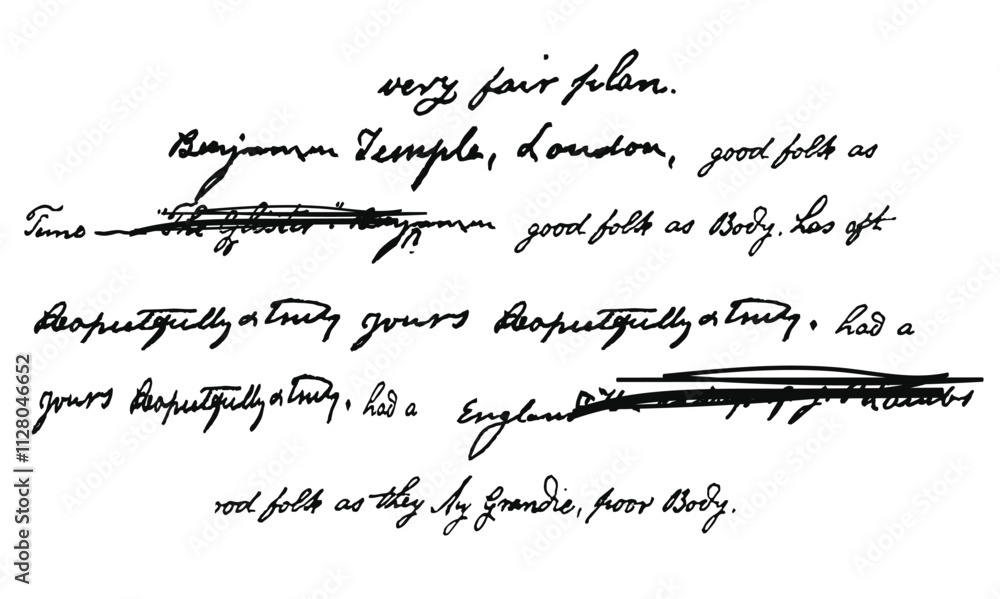 very fair plan.
Benjamin Temple, London, good folk as
Time "The Glister." Benjamin good folk as Body. has oft
Respectfully & truly yours Respectfully & truly. had a
yours Respectfully & truly. had a England
rod folk as they My Grandie, poor Body.
Adobe Stock | #1128046652
Adobe Stock